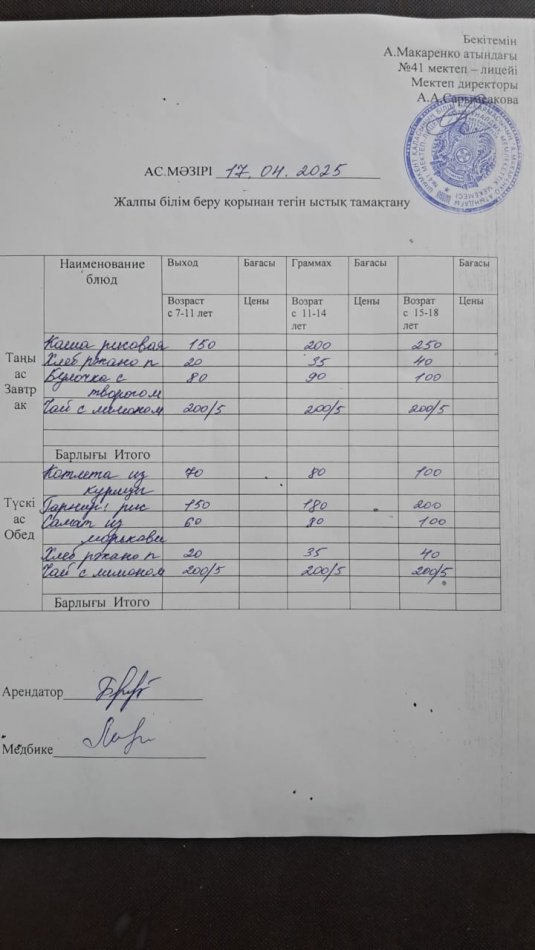 Бекітемін
А.Макаренко атындағы
№41 мектеп – лицейі
Мектеп директоры
А.А.Сарымсакова
АС.МӘЗІРІ 17.04.2025
Жалпы білім беру қорынан тегін ыстық тамақтану
Наименование блюд Выход Бағасы Граммах Бағасы Бағасы
Возраст с 7-11 лет Цены Возрат с 11-14 лет Цены Возрат с 15-18 лет Цены
Таңы ас Завтр ак
Каша рисовая 150 200 250
Хлеб ржано п 20 35 40
Булочка с творогом 80 90 100
Чай с лимоном 200/5 200/5 200/5
Барлығы Итого
Түскі ас Обед
Котлета из курицы 70 80 100
Гарнир: рис 150 180 200
Салат из моркови 60 80 100
Хлеб ржано п 20 35 40
Чай с лимоном 200/5 200/5 200/5
Барлығы Итого
Арендатор
Медбике